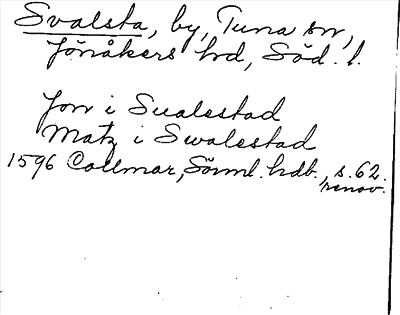 Svalsta, by, Tuna sn,
Jönåkers hd, Söd. l.
Jon i Sualestad
Matz i Swalestad
1596 Collmar, Sörml. hdb., s. 62.
renov.